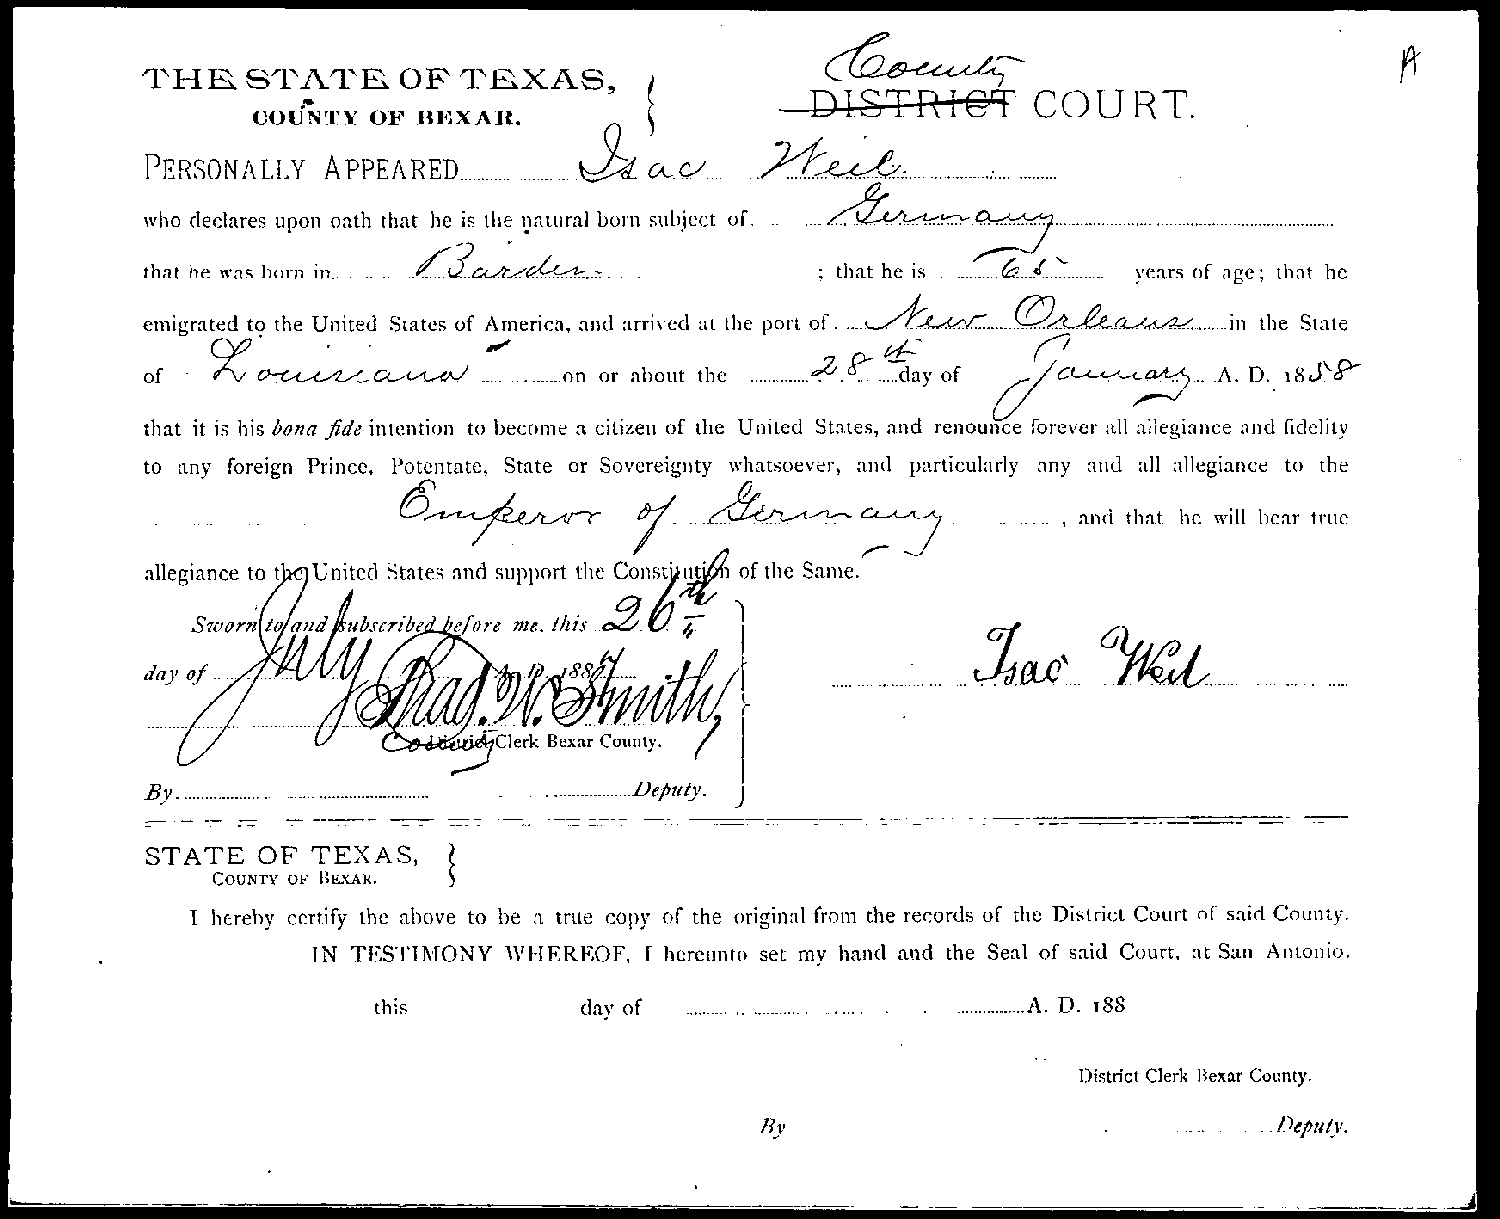 A
County
THE STATE OF TEXAS, DISTRICT COURT.
COUNTY OF BEXAR.
PERSONALLY APPEARED Isac Weil
who declares upon oath that he is the natural born subject of Germany
that he was born in Barden ; that he is 65 years of age; that he
emigrated to the United States of America, and arrived at the port of New Orleans in the State
of Louisiana on or about the 28th day of January A. D. 1858
that it is his bona fide intention to become a citizen of the United States, and renounce forever all allegiance and fidelity
to any foreign Prince, Potentate, State or Sovereignty whatsoever, and particularly any and all allegiance to the
Emperor of Germany , and that he will bear true
allegiance to the United States and support the Constitution of the Same.
Sworn to and subscribed before me, this 26th
day of July A. D. 188
Isac Weil
Thad. W. Smith,
County Clerk Bexar County.
By Deputy.
STATE OF TEXAS,
COUNTY OF BEXAR.
I hereby certify the above to be a true copy of the original from the records of the District Court of said County.
IN TESTIMONY WHEREOF, I hereunto set my hand and the Seal of said Court, at San Antonio,
this day of A. D. 188
District Clerk Bexar County.
By Deputy.